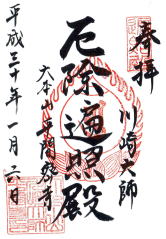 奉拝
川崎大師
厄除遍照殿
大本山平間寺
平成三十年一月六日